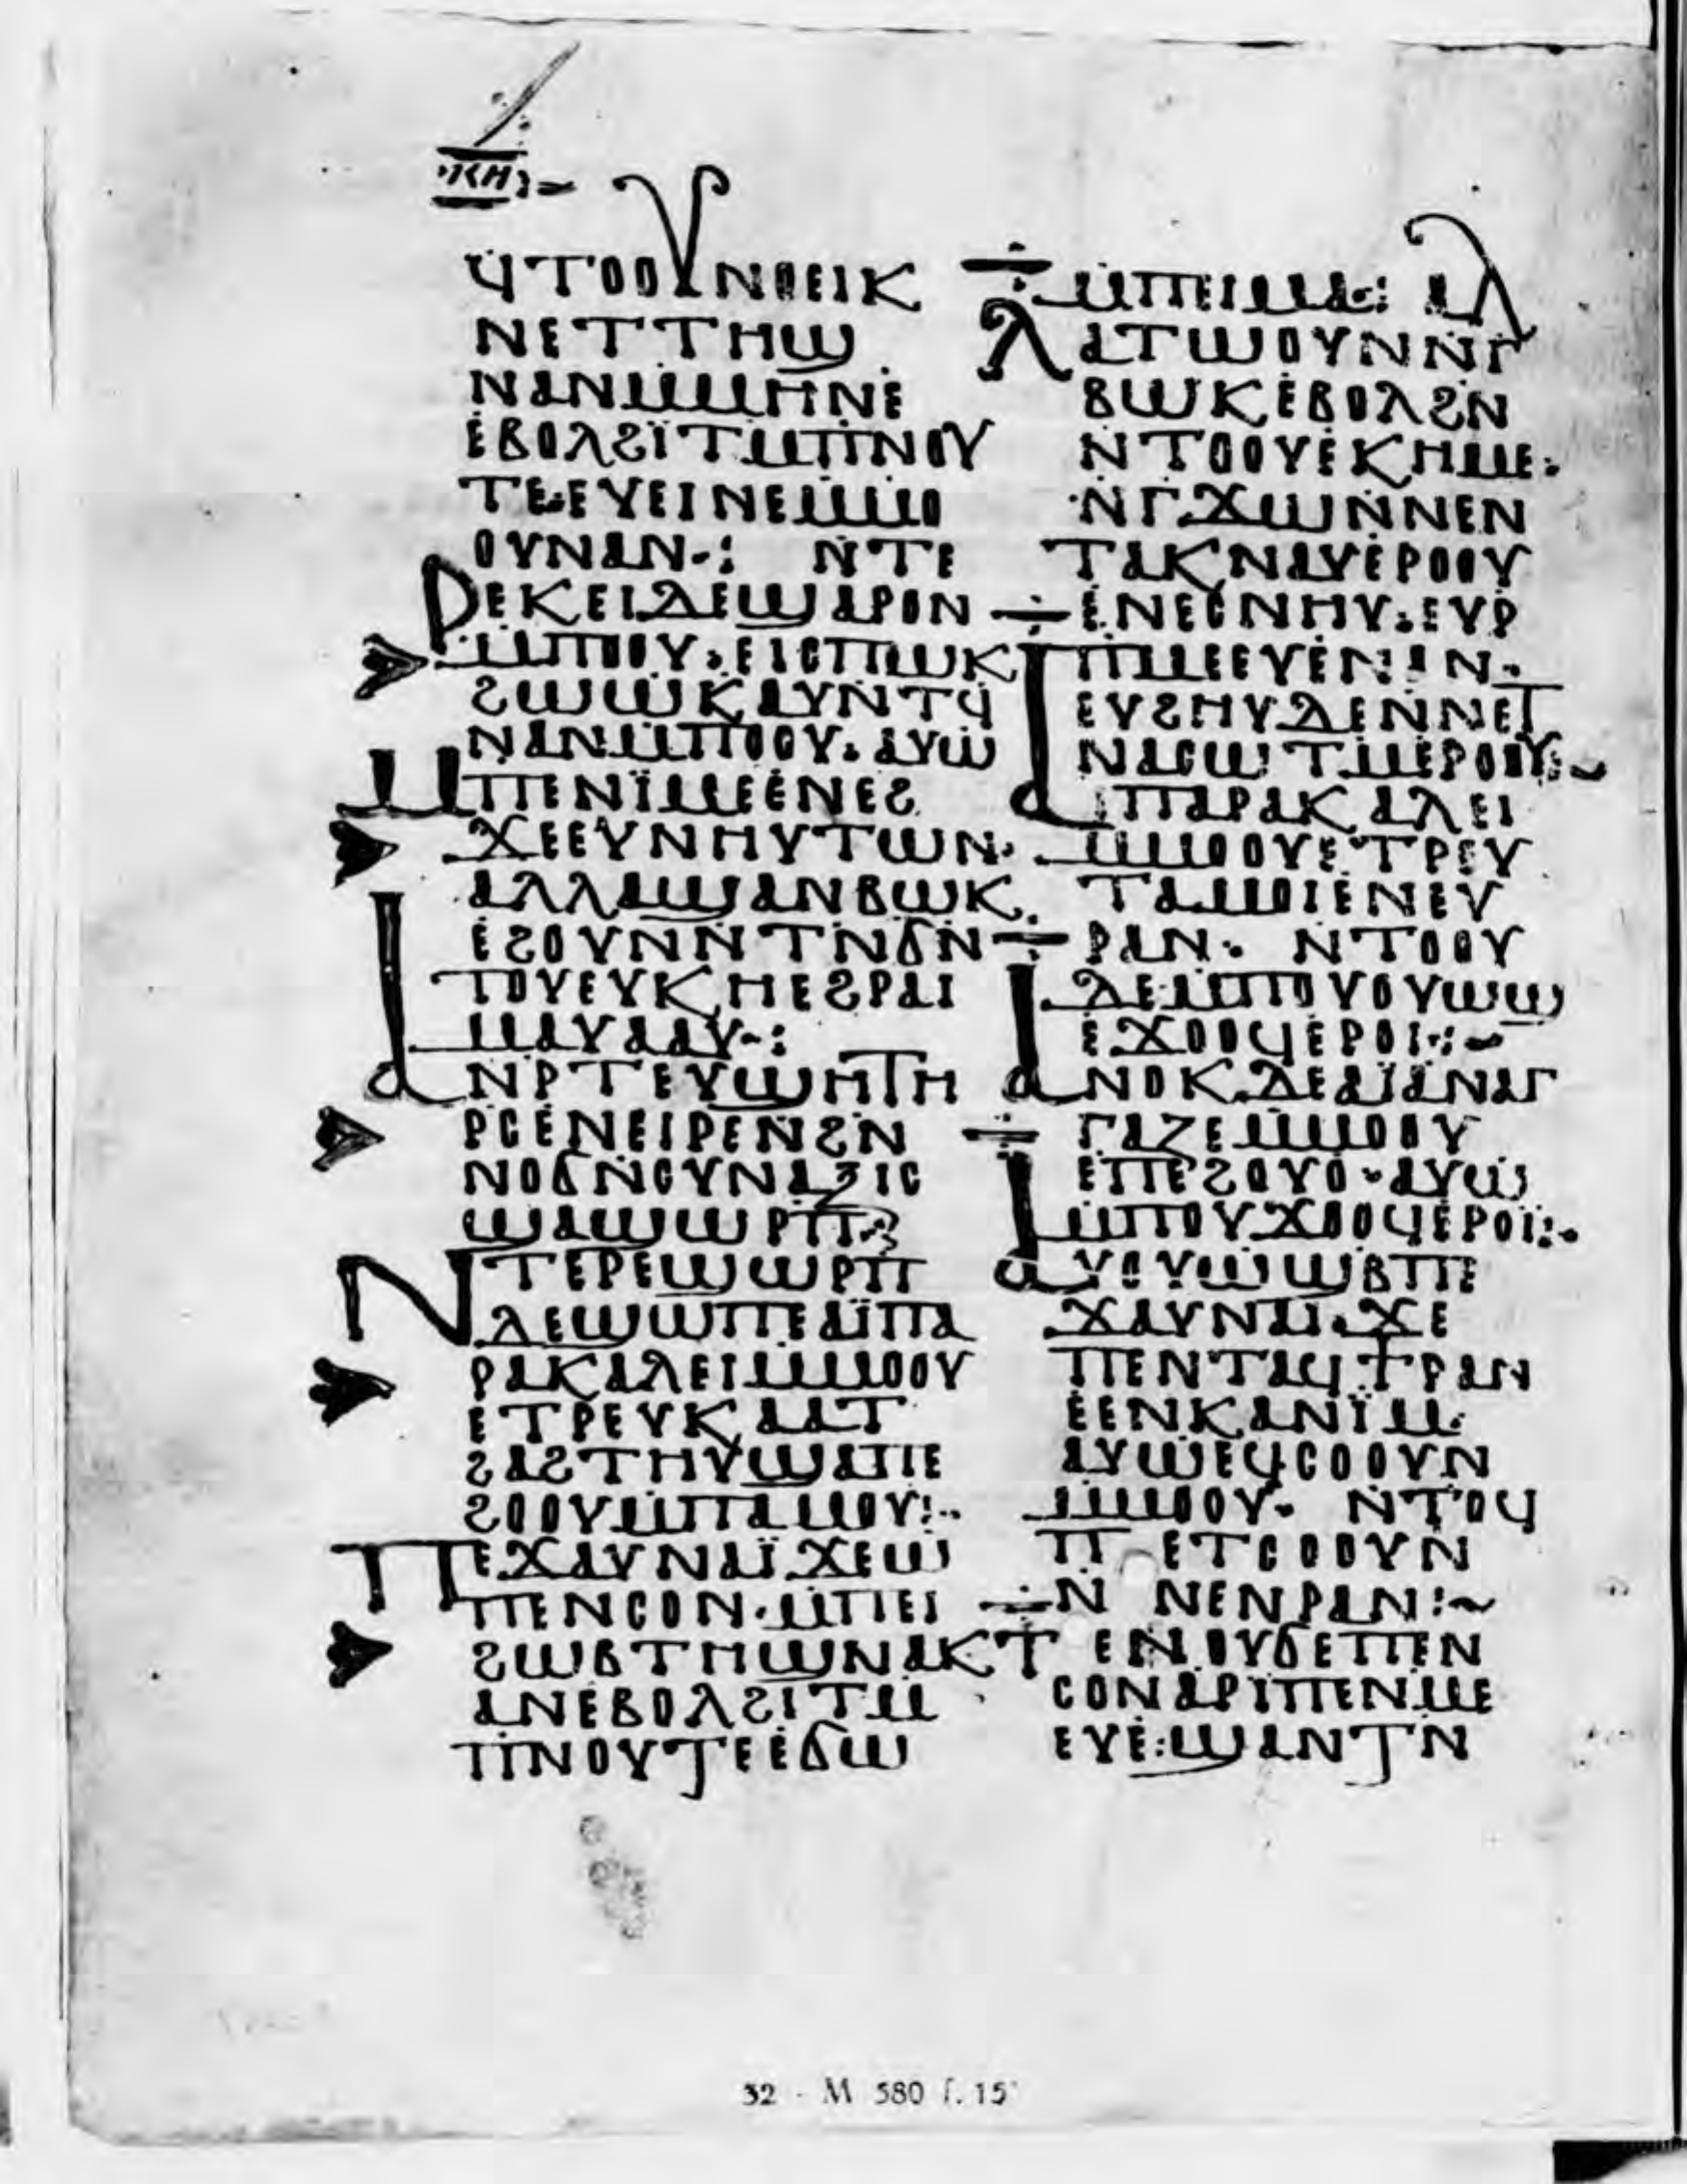 ⲕⲏ
ϥⲧⲟⲟⲩⲛⲟⲉⲓⲕ
ⲛⲉⲧⲧⲏϣ
ⲛⲁⲛⲙⲙⲏⲛⲉ
ⲉⲃⲟⲗϩⲓⲧⲙⲡⲛⲟⲩ
ⲧⲉ·ⲉⲩⲉⲓⲛⲉⲙⲙⲟ
ⲟⲩⲛⲁⲛ·: ⲛⲧⲉ
ⲣⲉⲕⲉⲓⲇⲉϣⲁⲣⲟⲛ
ⲙⲡⲟⲟⲩ·ⲉⲓⲥⲡⲱⲕ
ϩⲱⲱⲕⲁⲩⲛⲧϥ
ⲛⲁⲛⲙⲡⲟⲟⲩ·ⲁⲩⲱ
ⲙⲡⲉⲛⲓⲙⲉⲉⲛⲉϩ
ϫⲉⲉⲩⲛⲏⲩⲧⲱⲛ·
ⲁⲗⲗⲁϣⲁⲛⲃⲱⲕ
ⲉϩⲟⲩⲛⲛⲧⲛϭⲛ
ⲧⲟⲩⲉⲩⲕⲏⲉϩⲣⲁⲓ
ⲙⲁⲩⲁⲁⲩ·:
ⲁⲛⲣⲧⲉⲩϣⲏⲧⲏ
ⲣⲥⲉⲛⲉⲓⲣⲉⲛϩⲛ
ⲛⲟϭⲛⲥⲩⲛⲁⲝⲓⲥ
ϣⲁϣⲱⲣⲡ·
ⲛⲧⲉⲣⲉϣⲱⲣⲡ
ⲇⲉϣⲱⲡⲉⲁⲓⲡⲁ
ⲣⲁⲕⲁⲗⲉⲓⲙⲙⲟⲟⲩ
ⲉⲧⲣⲉⲩⲕⲁⲁⲧ
ϩⲁϩⲧⲏⲩϣⲁⲡⲉ
ϩⲟⲟⲩⲙⲡⲁⲙⲟⲩ:·
ⲡⲉϫⲁⲩⲛⲁⲓϫⲉⲱ
ⲡⲉⲛⲥⲟⲛ·ⲙⲡⲉⲓ
ϩⲱⲃⲧⲏϣⲛⲁⲕ
ⲁⲛⲉⲃⲟⲗϩⲓⲧⲙ
ⲡⲛⲟⲩⲧⲉⲉϭⲱ
ⲙⲡⲉⲓⲙⲁ·: ⲁⲗ
ⲗⲁⲧⲱⲟⲩⲛⲛⲅ
ⲃⲱⲕⲉⲃⲟⲗϩⲛ
ⲛⲧⲟⲟⲩⲉⲕⲏⲙⲉ·
ⲛⲅϫⲱⲛⲛⲉⲛ
ⲧⲁⲕⲛⲁⲩⲉⲣⲟⲟⲩ
ⲉⲛⲉⲥⲛⲏⲩ·ⲉⲩⲣ
ⲡⲙⲉⲉⲩⲉⲛⲁⲛ·
ⲉⲩϩⲏⲩⲇⲉⲛⲛⲉⲧ
ⲛⲁⲥⲱⲧⲙⲉⲣⲟⲟⲩ:
ⲁⲓⲡⲁⲣⲁⲕⲁⲗⲉⲓ
ⲙⲙⲟⲟⲩⲉⲧⲣⲉⲩ
ⲧⲁⲙⲟⲓⲉⲛⲉⲩ
ⲣⲁⲛ· ⲛⲧⲟⲟⲩ
ⲇⲉⲙⲡⲟⲩⲟⲩⲱϣ
ⲉϫⲟⲟϥⲉⲣⲟⲓ·:
ⲁⲛⲟⲕⲇⲉⲁⲓⲁⲛⲁⲅ
ⲅⲁⲍⲉⲙⲙⲟⲟⲩ
ⲉⲡⲉϩⲟⲩⲟ·ⲁⲩⲱ
ⲙⲡⲟⲩϫⲟⲟϥⲉⲣⲟⲓ:·
ⲁⲩⲟⲩⲱϣⲃⲡⲉ
ϫⲁⲩⲛⲁⲓ·ϫⲉ
ⲡⲉⲛⲧⲁϥϯⲣⲁⲛ
ⲉⲉⲛⲕⲁⲛⲓⲙ·
ⲁⲩⲱⲉϥⲥⲟⲟⲩⲛ
ⲙⲙⲟⲟⲩ· ⲛⲧⲟϥ
ⲡ ⲉⲧⲥⲟⲟⲩⲛ
ⲛ ⲛⲉⲛⲣⲁⲛ:
ⲧⲉⲛⲟⲩϭⲉⲡⲉⲛ
ⲥⲟⲛⲁⲣⲓⲡⲉⲛⲙⲉ
ⲉⲩⲉ:ϣⲁⲛⲧⲛ
32 - M 580 f. 15